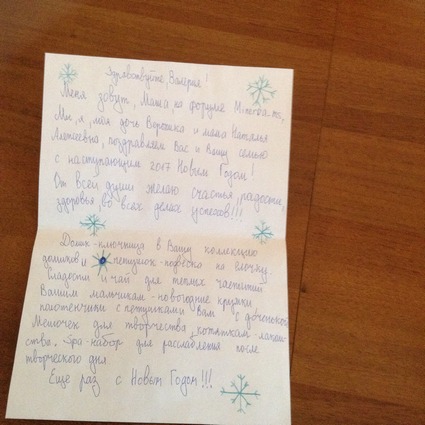 Здравствуйте, Валерия!
Меня зовут Маша, на форуме
Мы, я, моя дочь Вероника и мама Наталья
Алексеевна, поздравляем Вас и Вашу семью
с наступающим 2017 Новым Годом!
От всей души желаю счастья, радости,
здоровья, во всех делах успехов!!!
Домик-ключница в Вашу коллекцию
домиков и петушок-подвеска на ёлочку.
Сладости и чай для теплых чаепитий
Вашим мальчикам-новогодние кружки
полотенчики с петушками Вам с доченькой
Мешочек для творчества, котяткам-лаком-
ства. Spa-набор для расслабления после
творческого дня
Еще раз с Новым Годом!!!